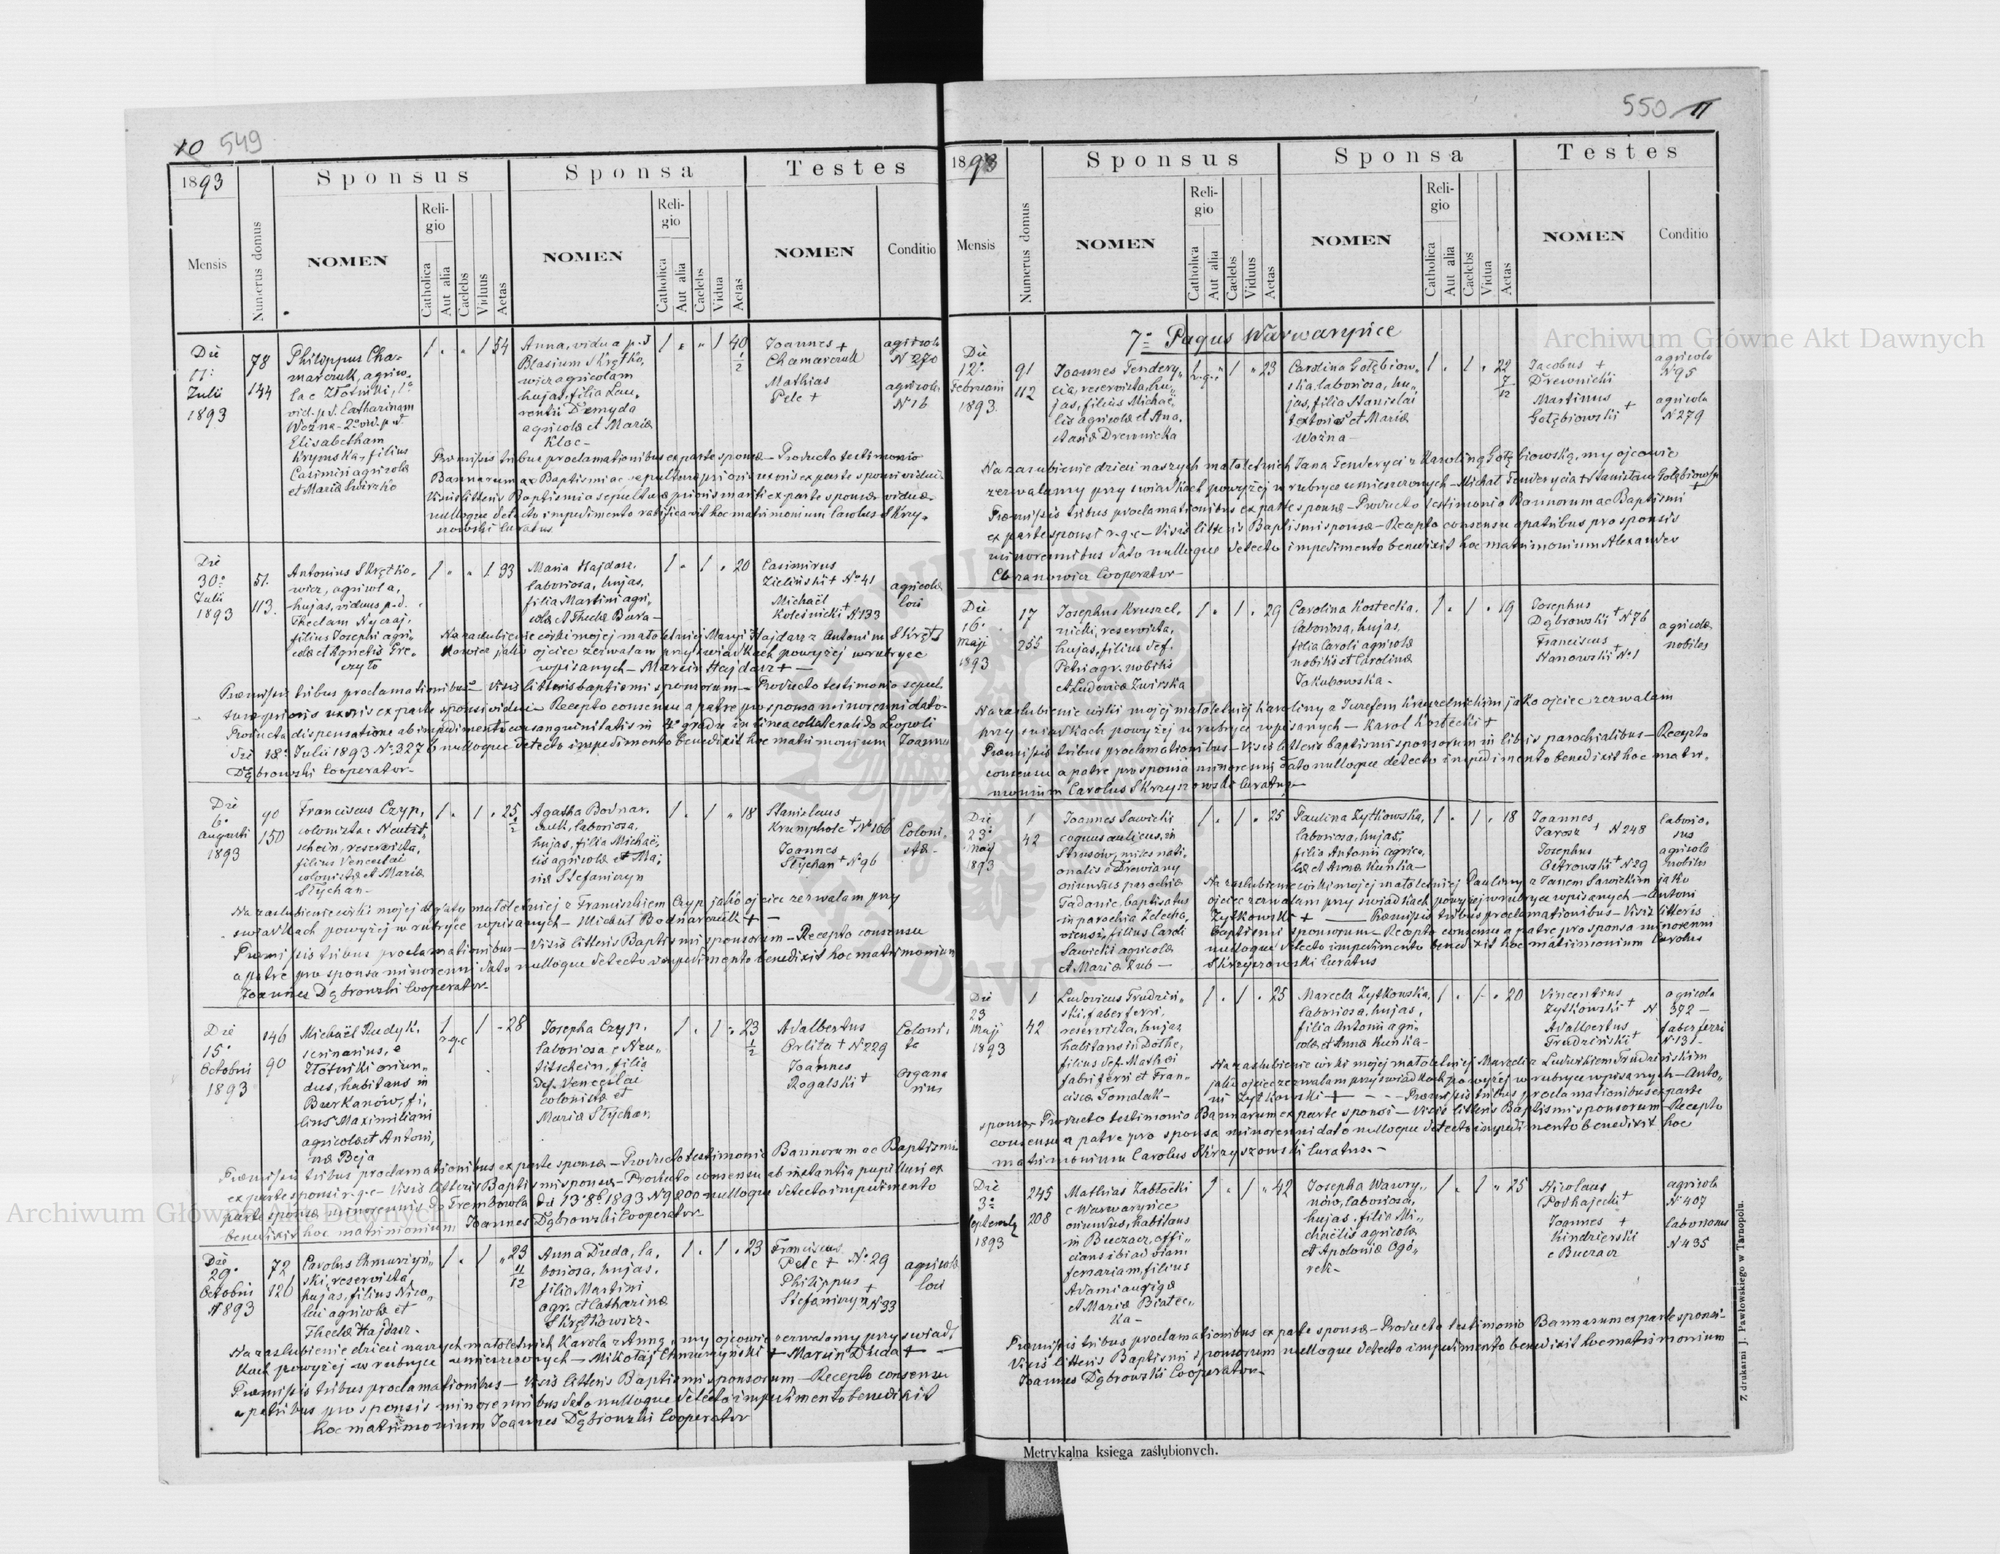 10 549
1893
Sponsus
Sponsa
Testes
Mensis
Numerus domus
NOMEN
Religio
Catholica
Aut alia
Caelebs
Viduus
Aetas
NOMEN
Religio
Catholica
Aut alia
Caelebs
Vidua
Aetas
NOMEN
Conditio
Die
11ª
Julii
1893
78
144
Philippus Cha-
marczuk, agrico-
la e Złotniki, 1º
vid. p. d. Catharinam
Woźna - 2º vid. p. d.
Elisabetham
Krymska, filius
Casimiri agricolæ
et Mariæ Świrzko
1 " " 1 54
Anna, vidua p. d
Blasium Skrętko,
wicz agricolam
hujas, filia Lau,
rentii Demyda
agricolæ et Mariæ
Kloc -
1 " " 1 40 1/2
Joannes +
Chamarczuk
Mathias
Pelc +
agricola
N 270
agricola
N 16
Præmissis tribus proclamationibus ex parte sponsæ - Producto testimonio
Bannorum ac Baptismi ac sepulturæ prioris uxoris ex parte sponsi vidui -
Visis litteris Baptismi a sepulturæ prioris mariti ex parte sponsæ viduæ -
nulloque detecto impedimento ratificavit hoc matrimonium Carolus Skrzy-
szowski Curatus
Die
30ª
Julii
1893
51.
113.
Antonius Skrętko-
wicz, agricola,
hujas, viduus p. d.
Theclam Nyczaj,
filius Josephi agri-
colæ et Agnetis Gre-
czyło
1 " " 1 33
Maria Hajdasz.
laboriosa, hujas,
filia Martini agri-
colæ et Theclæ Bura -
1 " 1 " 20
Casimirus
Zieliński + Nº 41
Michaël
Koleśnicki + N. 133
agricolæ
loci
Na zaślubienie córki mojej małoletniej Maryi Hajdasz z Antonim Skręt-
kowicz jako ojciec zezwalam przy świadkach powyżej w rubryce
wpisanych - Marcin Hajdasz + -
Præmissis tribus proclamationibus - Visis litteris baptismi sponsorum - Producto testimonio sepul-
turæ prioris uxoris ex parte sponsi vidui - Recepto consensu a patre pro sponsa minorenni dato -
Producta dispensatione ab impedimento consanguinitatis in 4º gradu in linea collaterali do Leopoli
die 18ª Julii 1893 Nº 3276 nulloque detecto impedimento benedixit hoc matrimonium Joannes
Dąbrowski Cooperator -
Die
6ª
Augusti
1893
90
150
Franciscus Czyp,
colonista e Neutit-
schein, reservista,
filius Venceslai
colonistæ et Mariæ
Stychan -
1 " 1 " 25 1/2
Agatha Bodnar-
czuk, laboriosa,
hujas, filia Michaë-
lis agricolæ et Ma-
riæ Stefaniczyn
1 " 1 " 18
Stanislaus
Krumpholc + Nº 106
Joannes
Stychan + N 96
Coloni-
stæ -
Na zaślubienie córki mojej Agaty małoletniej z Franciszkiem Czyp jako ojciec zezwalam przy
świadkach powyżej w rubryce wpisanych - Michał Bodnarczuk + -
Præmissis tribus proclamationibus - Visis litteris Baptismi sponsorum - Recepto consensu
a patre pro sponsa minorenni dato nulloque detecto impedimento benedixit hoc matrimonium
Joannes Dąbrowski Cooperator -
Die
15ª
Octobris
1893
146
90
Michaël Rudyk,
serinarius, e
Złotniki oriun-
dus, habitans in
Burkanów, fi-
lius Maximiliani
agricolæ et Antoni-
næ Beja
1 r.g.c 1 " 28
Josepha Czyp.
laboriosa e Neu-
titschein, filia
def. Venceslai
colonistæ et
Mariæ Stychan
1 " 1 " 23 1/2
Adalbertus
Orlita + N 229
Joannes
Rogalski +
Coloni-
sta
Organa
rius
Præmissis tribus proclamationibus ex parte sponsæ - Producto testimonio Bannorum ac Baptismi
ex parte sponsi r.g.c - Visis litteris Baptismi sponsæ - Producto consensu ab instantia pupillari ex
parte sponsæ minorennis do Trembowla dd 13 8ª 1893 N 9200 nulloque detecto impedimento
benedixit hoc matrimonium Joannes Dąbrowski Cooperator -
Die
29ª
Octobris
1893
72
126
Carolus Chmurzyń-
ski, reservista
hujas, filius Nico-
lai agricolæ et
Theclæ Hajdasz -
1 " 1 " 23 11/12
Anna Duda, la-
boriosa, hujas,
filia Martini
agr. et Catharinæ
Skrętkowicz -
1 " 1 " 23
Franciscus
Pelc + Nº 29
Philippus
Stefaniczyn + N 33
agricolæ
loci
Na zaślubienie dzieci naszych małoletnich Karola z Anną, my ojcowie zezwalamy przy świad-
kach powyżej w rubryce umieszczonych - Mikołaj Chmurzyński + Marcin Duda + -
Præmissis tribus proclamationibus - Visis litteris Baptismi sponsorum - Recepto consensu
a patribus pro sponsis minorennibus dato nulloque detecto impedimento benedixit
hoc matrimonium Joannes Dąbrowski Cooperator
550 11
1893
Sponsus
Sponsa
Testes
Mensis
Numerus domus
NOMEN
Religio
Catholica
Aut alia
Caelebs
Viduus
Aetas
NOMEN
Religio
Catholica
Aut alia
Caelebs
Vidua
Aetas
NOMEN
Conditio
7º Pagus Warwaryńce
Die
12ª
Februarii
1893
91
112
Joannes Fendery-
cia, reservista, hu-
jas, filius Michaë-
lis agricolæ et Ana-
stasiæ Drewnicka
r.g.c 1 " 23
Carolina Gołębiow-
ska, laboriosa, hu-
jas, filia Stanislai
textoris et Mariæ
Woźna -
1 " 1 " 22 7/12
Jacobus +
Drewnicki
Martinus
Gołębiowski +
agricola
N 95
agricola
N 279
Na zaślubienie dzieci naszych małoletnich Jana Fenderyci z Karoliną Gołębiowską, my ojcowie
zezwalamy przy świadkach powyżej w rubryce umieszczonych - Michał Fenderycia + Stanisław Gołębiowski +
Præmissis tribus proclamationibus ex parte sponsæ - Producto testimonio Bannorum ac Baptismi
ex parte sponsi r.g.c - Visis litteris Baptismi sponsæ - Recepto consensu a patribus pro sponsis
minorennibus dato nulloque detecto impedimento benedixit hoc matrimonium Alexander
Chranowicz Cooperator -
Die
16ª
Maji
1893
17
255
Josephus Kruszel-
nicki, reservista,
hujas, filius def.
Petri agr. nobilis
et Ludovicæ Zwirska
1 " 1 " 29
Carolina Kostecka,
laboriosa, hujas,
filia Caroli agricolæ
nobilis et Carolinæ
Jakubowska -
1 " 1 " 19
Josephus
Dąbrowski + N 76
Franciscus
Hanowski + Nº 1
agricolæ
nobiles
Na zaślubienie córki mojej małoletniej Karoliny z Józefem Kruszelnickim jako ojciec zezwalam
przy świadkach powyżej w rubryce wpisanych - Karol Kostecki +
Præmissis tribus proclamationibus - Visis litteris baptismi sponsorum in libris parochialibus - Recepto
consensu a patre pro sponsa minorenni dato nulloque detecto impedimento benedixit hoc matri-
monium Carolus Skrzyszowski Curatus -
Die
23ª
Maji
1893
1
42
Joannes Sawicki
coquus aulicus, in
Strusów, miles nati-
onalis e Drewiany
oriundus parochiæ
Tadanie, baptisatus
in parochia Zelecho-
viensi, filius Caroli
Sawicki agricolæ
et Mariæ Zub -
1 " 1 " 25
Paulina Zytkowska,
laboriosa, hujas,
filia Antonii agrico-
læ et Annæ Kuńka -
1 " 1 " 18
Joannes
Jarosz + N 248
Josephus
Ostrowski + N 29
laborio-
sus
agricola
nobilis
Na zaślubienie córki mojej małoletniej Pauliny z Janem Sawickim jako
ojciec zezwalam przy świadkach powyżej w rubryce wpisanych - Antoni
Zytkowski + - Præmissis tribus proclamationibus - Visis litteris
baptismi sponsorum - Recepto consensu a patre pro sponsa minorenni
nulloque detecto impedimento benedixit hoc matrimonium Carolus
Skrzyszowski Curatus
Die
23
Maji
1893
1
42
Ludovicus Trudziń-
ski, faber ferri,
reservista, hujas
habitans in Dothe,
filius def. Mathæi
fabri ferri et Fran-
ciscæ Tomalak -
1 " 1 " 25
Marcela Zytkowska,
laboriosa, hujas,
filia Antonii agri-
colæ et Annæ Kuńka -
1 " 1 " 20
Vincentius
Zytkowski +
Adalbertus
Trudziński +
agricola
N 392 -
faber ferri
N 131 -
Na zaślubienie córki mojej małoletniej Marceli z Ludwikiem Trudzińskim
jako ojciec zezwalam przy świadkach powyżej w rubryce wpisanych - Anto-
ni Zytkowski + - - - Præmissis tribus proclamationibus ex parte
sponsæ Producto testimonio Bannorum ex parte sponsi - Visis litteris Baptismi sponsorum - Recepto
consensu a patre pro sponsa minorenni dato nulloque detecto impedimento benedixit hoc
matrimonium Carolus Skrzyszowski Curatus -
Die
3ª
Septembris
1893
245
208
Mathias Zabłocki
e Warwaryńce
oriundus, habitans
in Buczacz, offi-
cians ibi ad viam
ferrariam, filius
Adami aurigæ
et Mariæ Białec-
ka -
1 " 1 " 42
Josepha Wawry-
nów, laboriosa,
hujas, filia Mi-
chaëlis agricolæ
et Apoloniæ Ogó-
rek -
1 " 1 " 25
Nicolaus
Podhajecki +
Joannes +
Kindzierski
e Buczacz
agricola
N 407
laboriosus
N 435
Præmissis tribus proclamationibus ex parte sponsæ - Producto testimonio Bannorum ex parte sponsi -
Visis litteris Baptismi sponsorum nulloque detecto impedimento benedixit hoc matrimonium
Joannes Dąbrowski Cooperator -
Metrykalna księga zaślubionych.
Z drukarni J. Pawłowskiego w Tarnopolu.
Archiwum Główne Akt Dawnych
Archiwum Główne Akt Dawnych